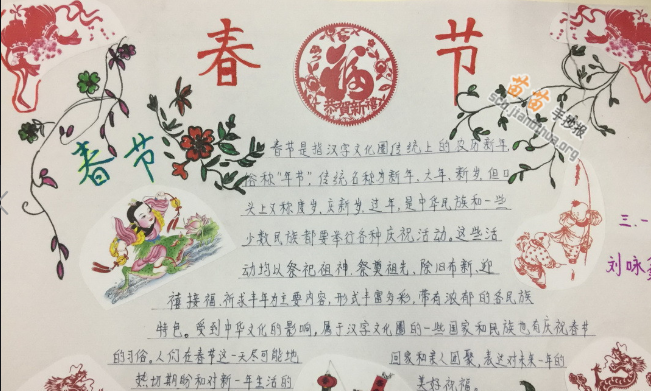 春 节
恭贺新禧
苗苗手抄报
scq.jianghua.org
春节
春节是指汉字文化圈传统上的农历新年,
俗称"年节",传统名称为新年、大年、新岁,但口
头上又称度岁、庆新岁、过年,是中华民族和一些
少数民族都要举行各种庆祝活动。这些活
动均以祭祀祖神、祭奠祖先、除旧布新、迎
禧接福、祈求丰年为主要内容,形式丰富多彩,带有浓郁的各民族
特色。受到中华文化的影响,属于汉字文化圈的一些国家和民族也有庆祝春节
的习俗。人们在春节这一天尽可能地 回家和亲人团聚,表达对未来一年的
热切期盼和对新一年生活的 美好祝福。
三.一
刘咏